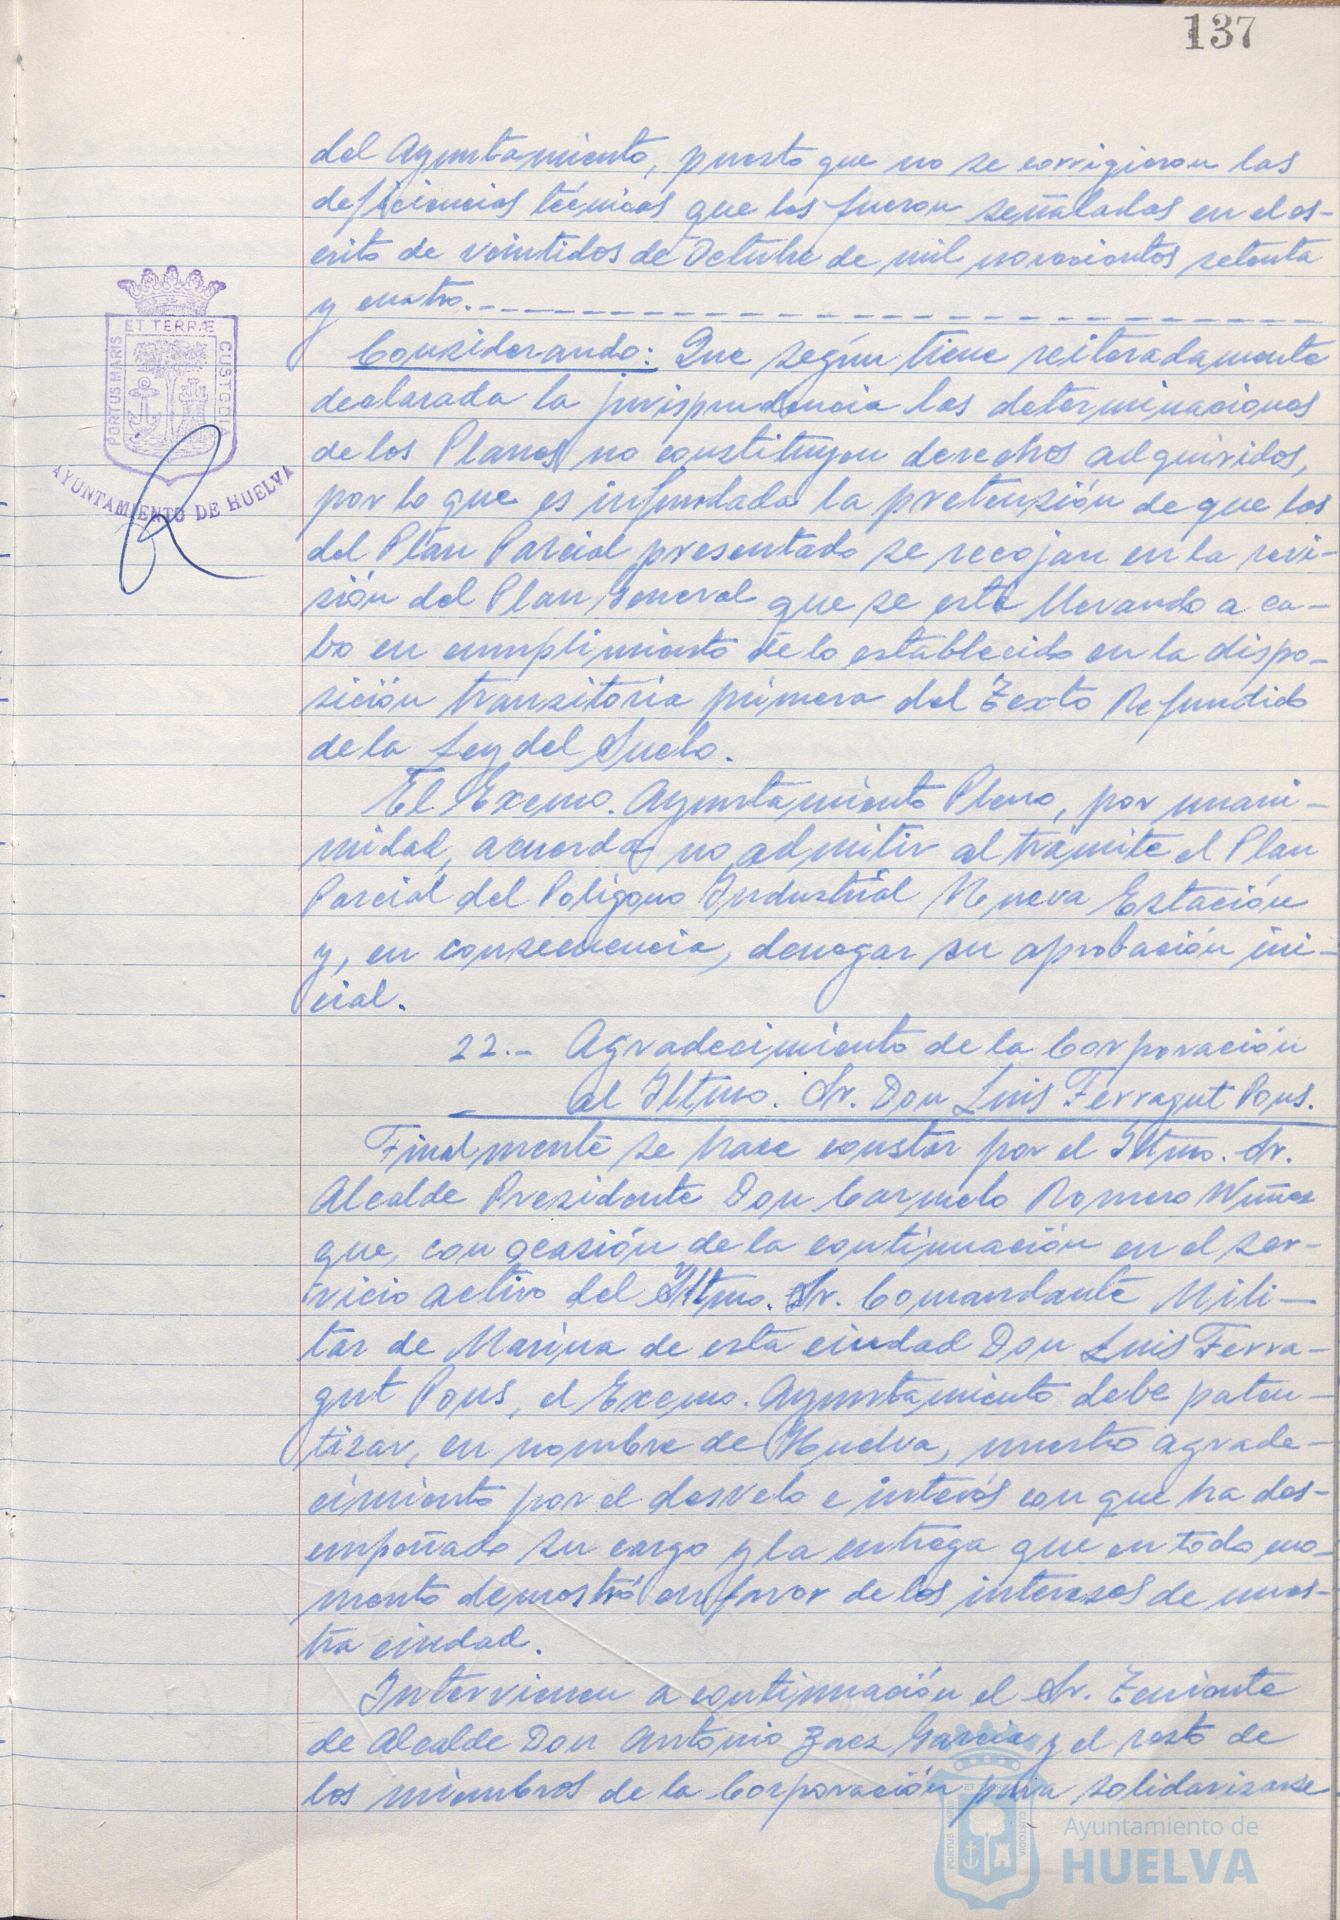 137
del Ayuntamiento, puesto que no se corrigieron las
deficiencias técnicas que les fueron señaladas en el es-
crito de veintidos de Octubre de mil novecientos setenta
y cuatro.
Considerando: Que según tiene reiteradamente
declarada la jurisprudencia las determinaciones
de los Planes no constituyen derechos adquiridos,
por lo que es infundada la pretensión de que los
del Plan Parcial presentado se recojan en la revi-
sión del Plan General que se está llevando a ca-
bo en cumplimiento de lo establecido en la dispo-
sición transitoria primera del Texto Refundido
de la Ley del Suelo.
El Excmo. Ayuntamiento Pleno, por unani-
midad, acuerda no admitir al trámite el Plan
Parcial del Polígono Industrial Nueva Estación
y, en consecuencia, denegar su aprobación ini-
cial.
22.- Agradecimiento de la Corporación
al Iltmo. Sr. Don Luis Ferragut Pons.
Finalmente se hace constar por el Iltmo. Sr.
Alcalde Presidente Don Carmelo Romero Núñez
que, con ocasión de la continuación en el ser-
vicio activo del Iltmo. Sr. Comandante Mili-
tar de Marina de esta ciudad Don Luis Ferra-
gut Pons, el Excmo. Ayuntamiento debe paten-
tizar, en nombre de Huelva, nuestro agrade-
cimiento por el desvelo e interés con que ha des-
empeñado su cargo y la entrega que en todo mo-
mento demostró en favor de los intereses de nues-
tra ciudad.
Intervienen a continuación el Sr. Teniente
de Alcalde Don Antonio García y el resto de
los miembros de la Corporación para solidarizarse
PORTUS MARIS
ET TERRÆ
CUSTODIA
AYUNTAMIENTO DE HUELVA
PORTUS MARIS
ET TERRÆ
CUSTODIA
Ayuntamiento de
HUELVA